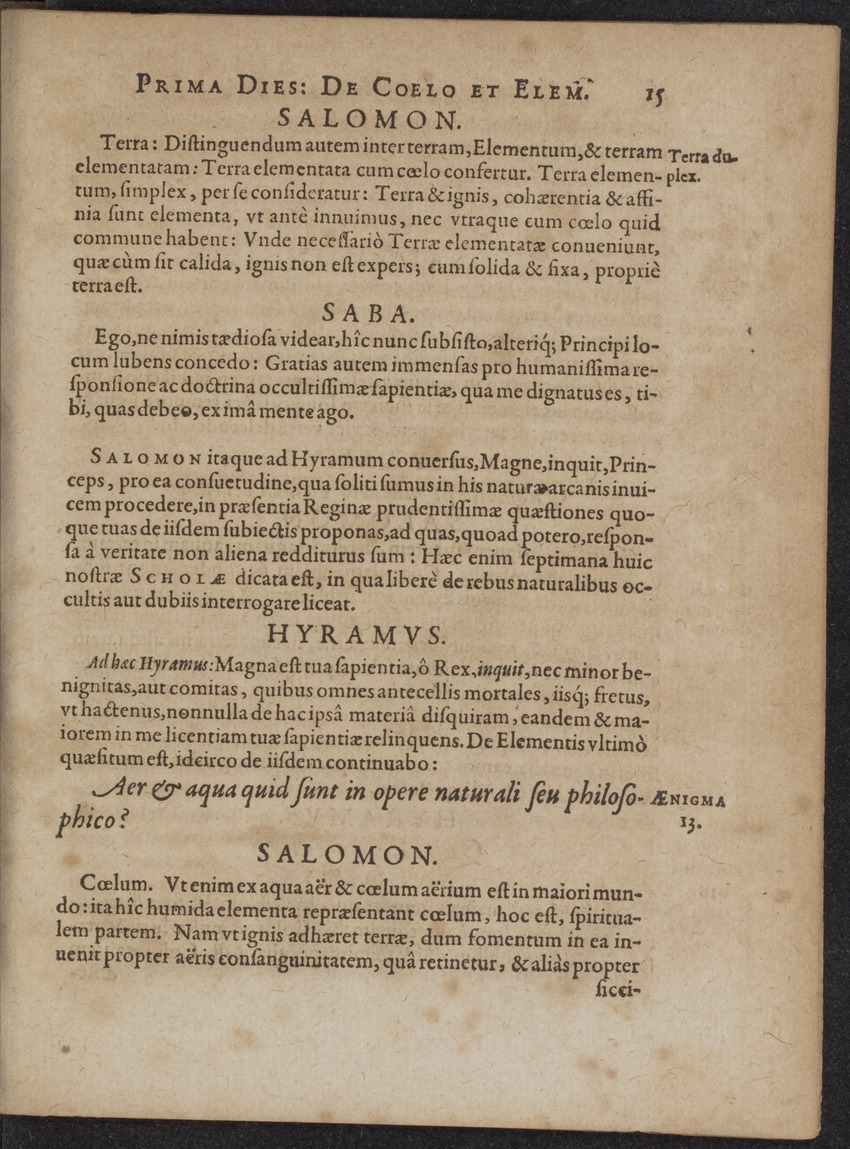 PRIMA DIES: DE COELO ET ELEM. 15
SALOMON.
Terra: Diſtinguendum autem inter terram, Elementum, & terram
Terra du-
elementatam: Terra elementata cum cœlo confertur. Terra elemen-
plex.
tum, ſimplex, per ſe conſideratur: Terra & ignis, cohærentia & affi-
nia ſunt elementa, vt antè innuimus, nec vtraque cum cœlo quid
commune habent: Vnde neceſſariò Terræ elementatæ conueniunt,
quæ cùm ſit calida, ignis non eſt expers; cum ſolida & fixa, propriè
terra eſt.
SABA.
Ego, ne nimis tædioſa videar, hîc nunc ſubſiſto, alteriq́; Principi lo-
cum lubens concedo: Gratias autem immenſas pro humaniſſima re-
ſponſione ac doctrina occultiſſimæ ſapientiæ, qua me dignatus es, ti-
bi, quas debeo, ex imâ mente ago.
SALOMON itaque ad Hyramum conuerſus, Magne, inquit, Prin-
ceps, pro ea conſuetudine, qua ſoliti ſumus in his naturæ arcanis inui-
cem procedere, in præſentia Reginæ prudentiſſimæ quæſtiones quo-
que tuas de iiſdem ſubiectis proponas, ad quas, quoad potero, reſpon-
ſa à veritate non aliena redditurus ſum: Hæc enim ſeptimana huic
noſtræ SCHOLÆ dicata eſt, in qua liberè de rebus naturalibus oc-
cultis aut dubiis interrogare liceat.
HYRAMVS.
Ad hæc Hyramus: Magna eſt tua ſapientia, ô Rex, inquit, nec minor be-
nignitas, aut comitas, quibus omnes antecellis mortales, iisq́; fretus,
vt hactenus, nonnulla de hac ipsâ materiâ diſquiram, eandem & ma-
iorem in me licentiam tuæ ſapientiæ relinquens. De Elementis vltimò
quæſitum eſt, ideirco de iiſdem continuabo:
Aer & aqua quid ſunt in opere naturali ſeu philoſo-
ÆNIGMA
phico?
13.
SALOMON.
Cœlum. Vt enim ex aqua aër & cœlum aërium eſt in maiori mun-
do: ita hîc humida elementa repræſentant cœlum, hoc eſt, ſpiritua-
lem partem. Nam vt ignis adhæret terræ, dum fomentum in ea in-
uenit propter aëris conſanguinitatem, quâ retinetur, & aliàs propter
ſicci-